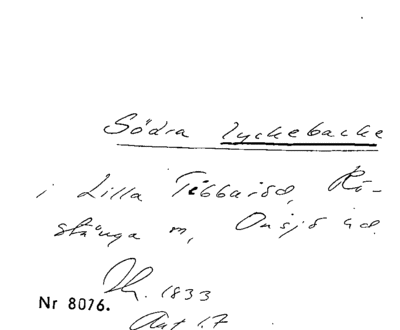 Södra Lyckebacke
i Lilla Tibbaröd, Rö-
stånga sn, Onsjö hd.
1833
Nr 8076.